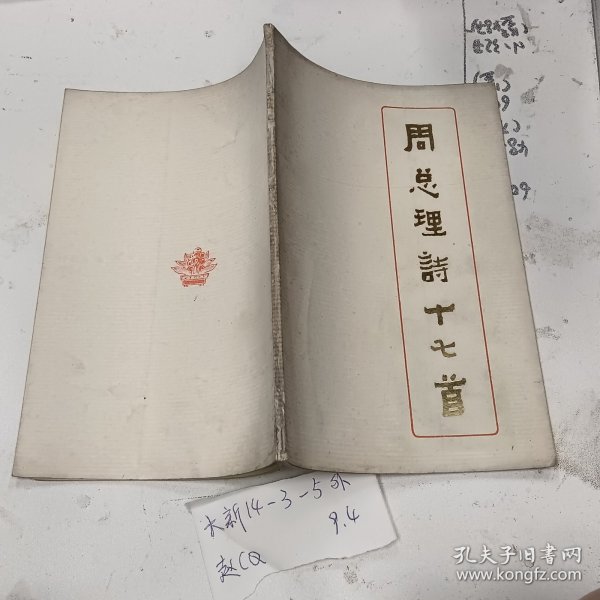 周总理詩十七首
大新14-3-5外
9.4
赵CQ
孔夫子旧书网
www.kongfz.com